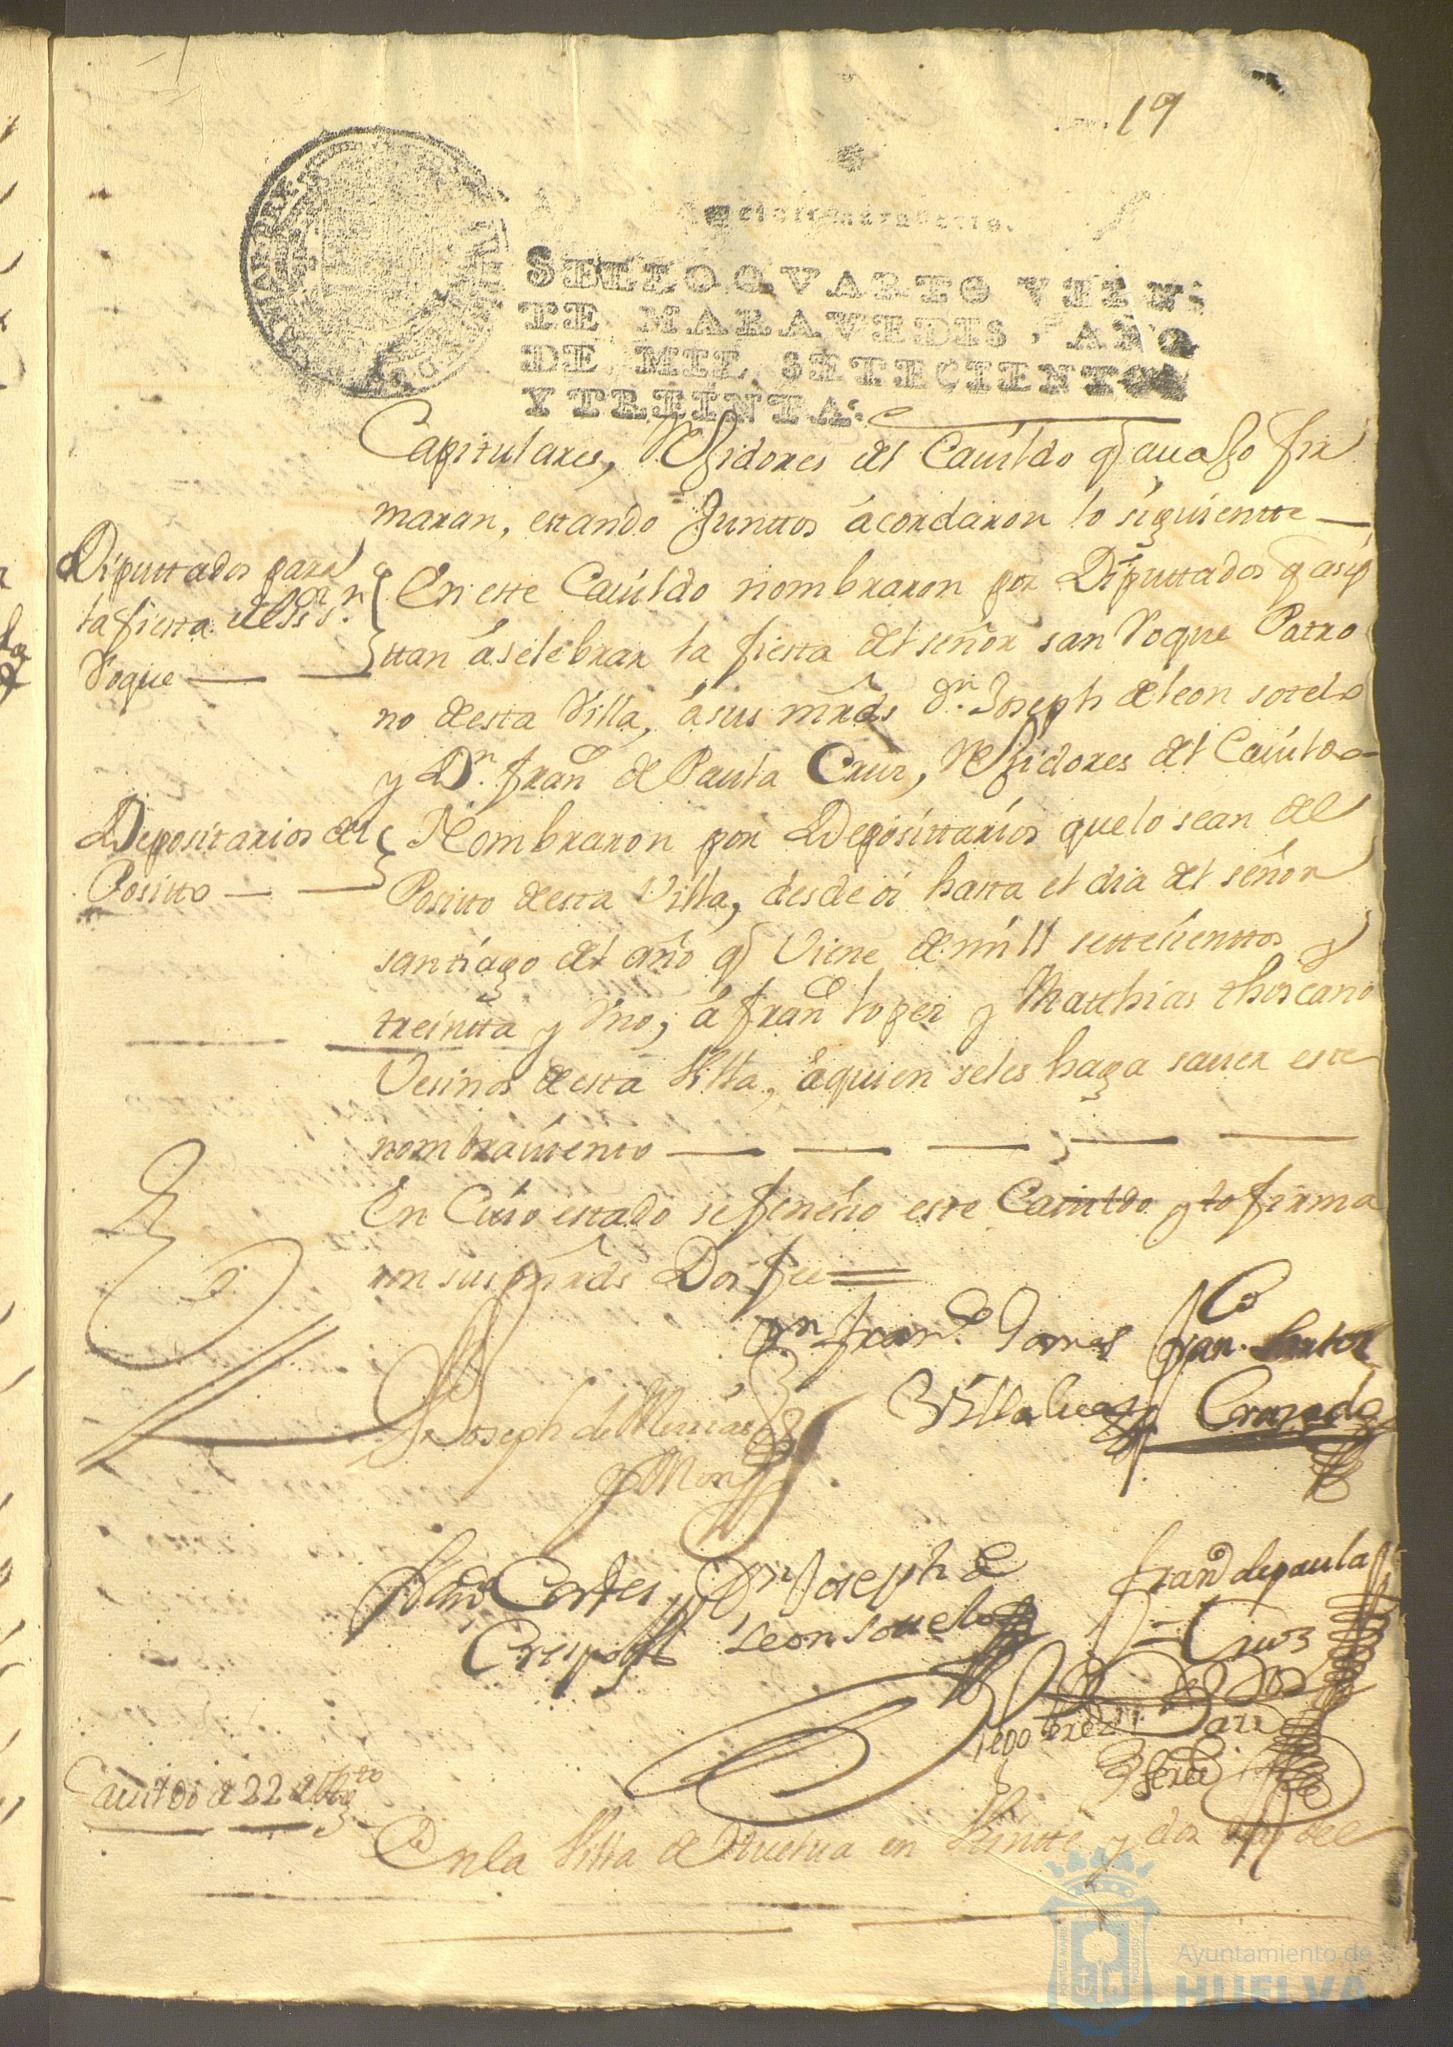 19
SELLO QVARTO VEIN
TE MARAVEDIS, AÑO
DE MIL SETECIENTOS
Y TREINTA.
Capitulares, Rexidores del Cauildo q avajo fir
maran, estando Junttos acordaron lo siguientte
Diputtados para
la fiesta del Sr Sn
Roque
En este Cauildo nombraron por Diputtados q asis
ttan á selebrar la fiesta del señor san Roque Patro
no desta Villa, á sus mrds Dn Joseph de leon sotelo
y Dn franco de Paula Cruz, Rexidores del Cauildo
Depositarios del
Positto
Nombraron por Deposittarios que lo sean del
Positto desta Villa, desde oi hasta el dia del señor
santiago del año q Viene de mill settecienttos y
treintta y Vno, á franco lopez y Matthias thoscano
Vesinos desta Villa, a quien se les haga sauer este
nombramiento
En Cuio estado se fenecio este Cauildo y lo firma
ron sus mrds Doi fee
Dn Franco Gomes
Villalua
Joseph de
y Mon
Juan
Cortes
Crespo
Dn Joseph de
Leon Sottelo
Franco de paula
Cruz
Diego Perez
Cauildo a 22 de Agto
En la Villa de Huelua en Veintte y dos dias del
Ayuntamiento de
HUELVA